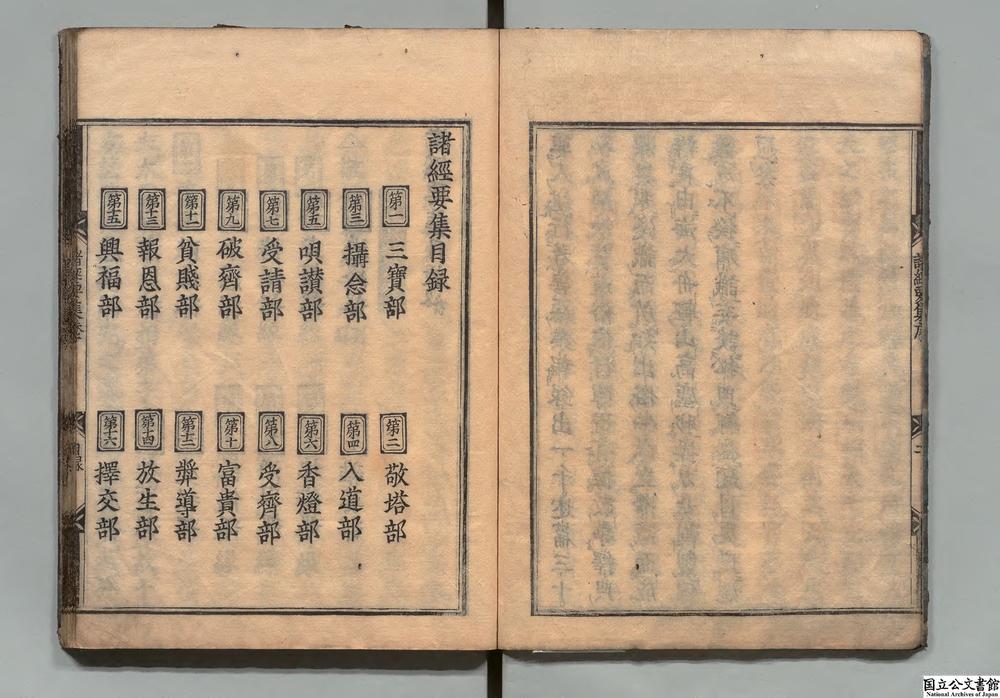 諸經要集目録
第一 三寶部 第二 敬塔部
第三 攝念部 第四 入道部
第五 唄讃部 第六 香燈部
第七 受請部 第八 受齊部
第九 破齊部 第十 富貴部
第十一 貧賤部 第十二 奬導部
第十三 報恩部 第十四 放生部
第十五 興福部 第十六 擇交部
諸經要集序
国立公文書館
National Archives of Japan